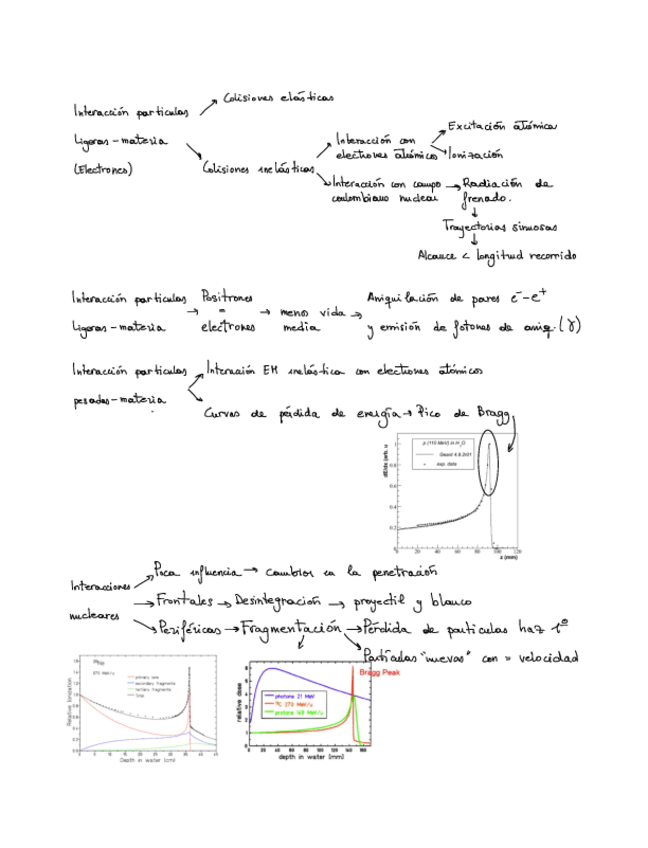 Colisiones elásticas
Interacción partículas
Ligeras - materia
(Electrones)
Colisiones inelásticas
Interacción con
electrones atómicos
Excitación atómica
Ionización
Interacción con campo
coulombiano nuclear
Radiación de
frenado.
Trayectorias sinuosas
Alcance < longitud recorrido
Interacción partículas
Ligeras - materia
Positrones
=
electrones
menos vida
media
Aniquilación de pares e⁻-e⁺
y emisión de fotones de aniq. (γ)
Interacción partículas
pesadas - materia
Interacción EM inelástica con electrones atómicos
Curvas de pérdida de energía → Pico de Bragg
p (110 MeV) in H2O
Geant 4.8.2r01
exp. data
dE/dx (arb. u
z (mm)
Interacciones
nucleares
Poca influencia → cambios en la penetración
→ Frontales → Desintegración → proyectil y blanco
Periféricas → Fragmentación → Pérdida de partículas haz 1º
Partículas "nuevas" con = velocidad
Relative Ionization
670 MeV/u
primary ions
secondary fragments
tertiary fragments
total
Depth in water (cm)
Bragg Peak
relative dose
photons 21 MeV
12C 270 MeV/u
protons 148 MeV/u
depth in water (mm)